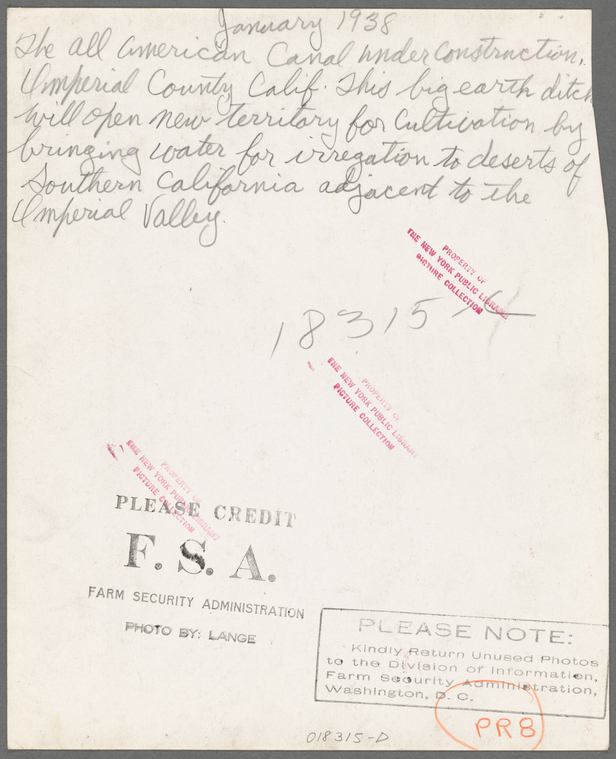 January 1938
The all american Canal under construction,
Imperial County, Calif. This big earth ditch
will open new territory for cultivation by
bringing water for irregation to deserts of
Southern California adjacent to the
Imperial Valley.
PROPERTY OF
THE NEW YORK PUBLIC LIBRARY
PICTURE COLLECTION
18315
PROPERTY OF
THE NEW YORK PUBLIC LIBRARY
PICTURE COLLECTION
PROPERTY OF
THE NEW YORK PUBLIC LIBRARY
PICTURE COLLECTION
PLEASE CREDIT
F. S. A.
FARM SECURITY ADMINISTRATION
PHOTO BY: LANGE
PLEASE NOTE:
Kindly Return Unused Photos
to the Division of Information,
Farm Security Administration,
Washington, D. C.
PR8
018315-D